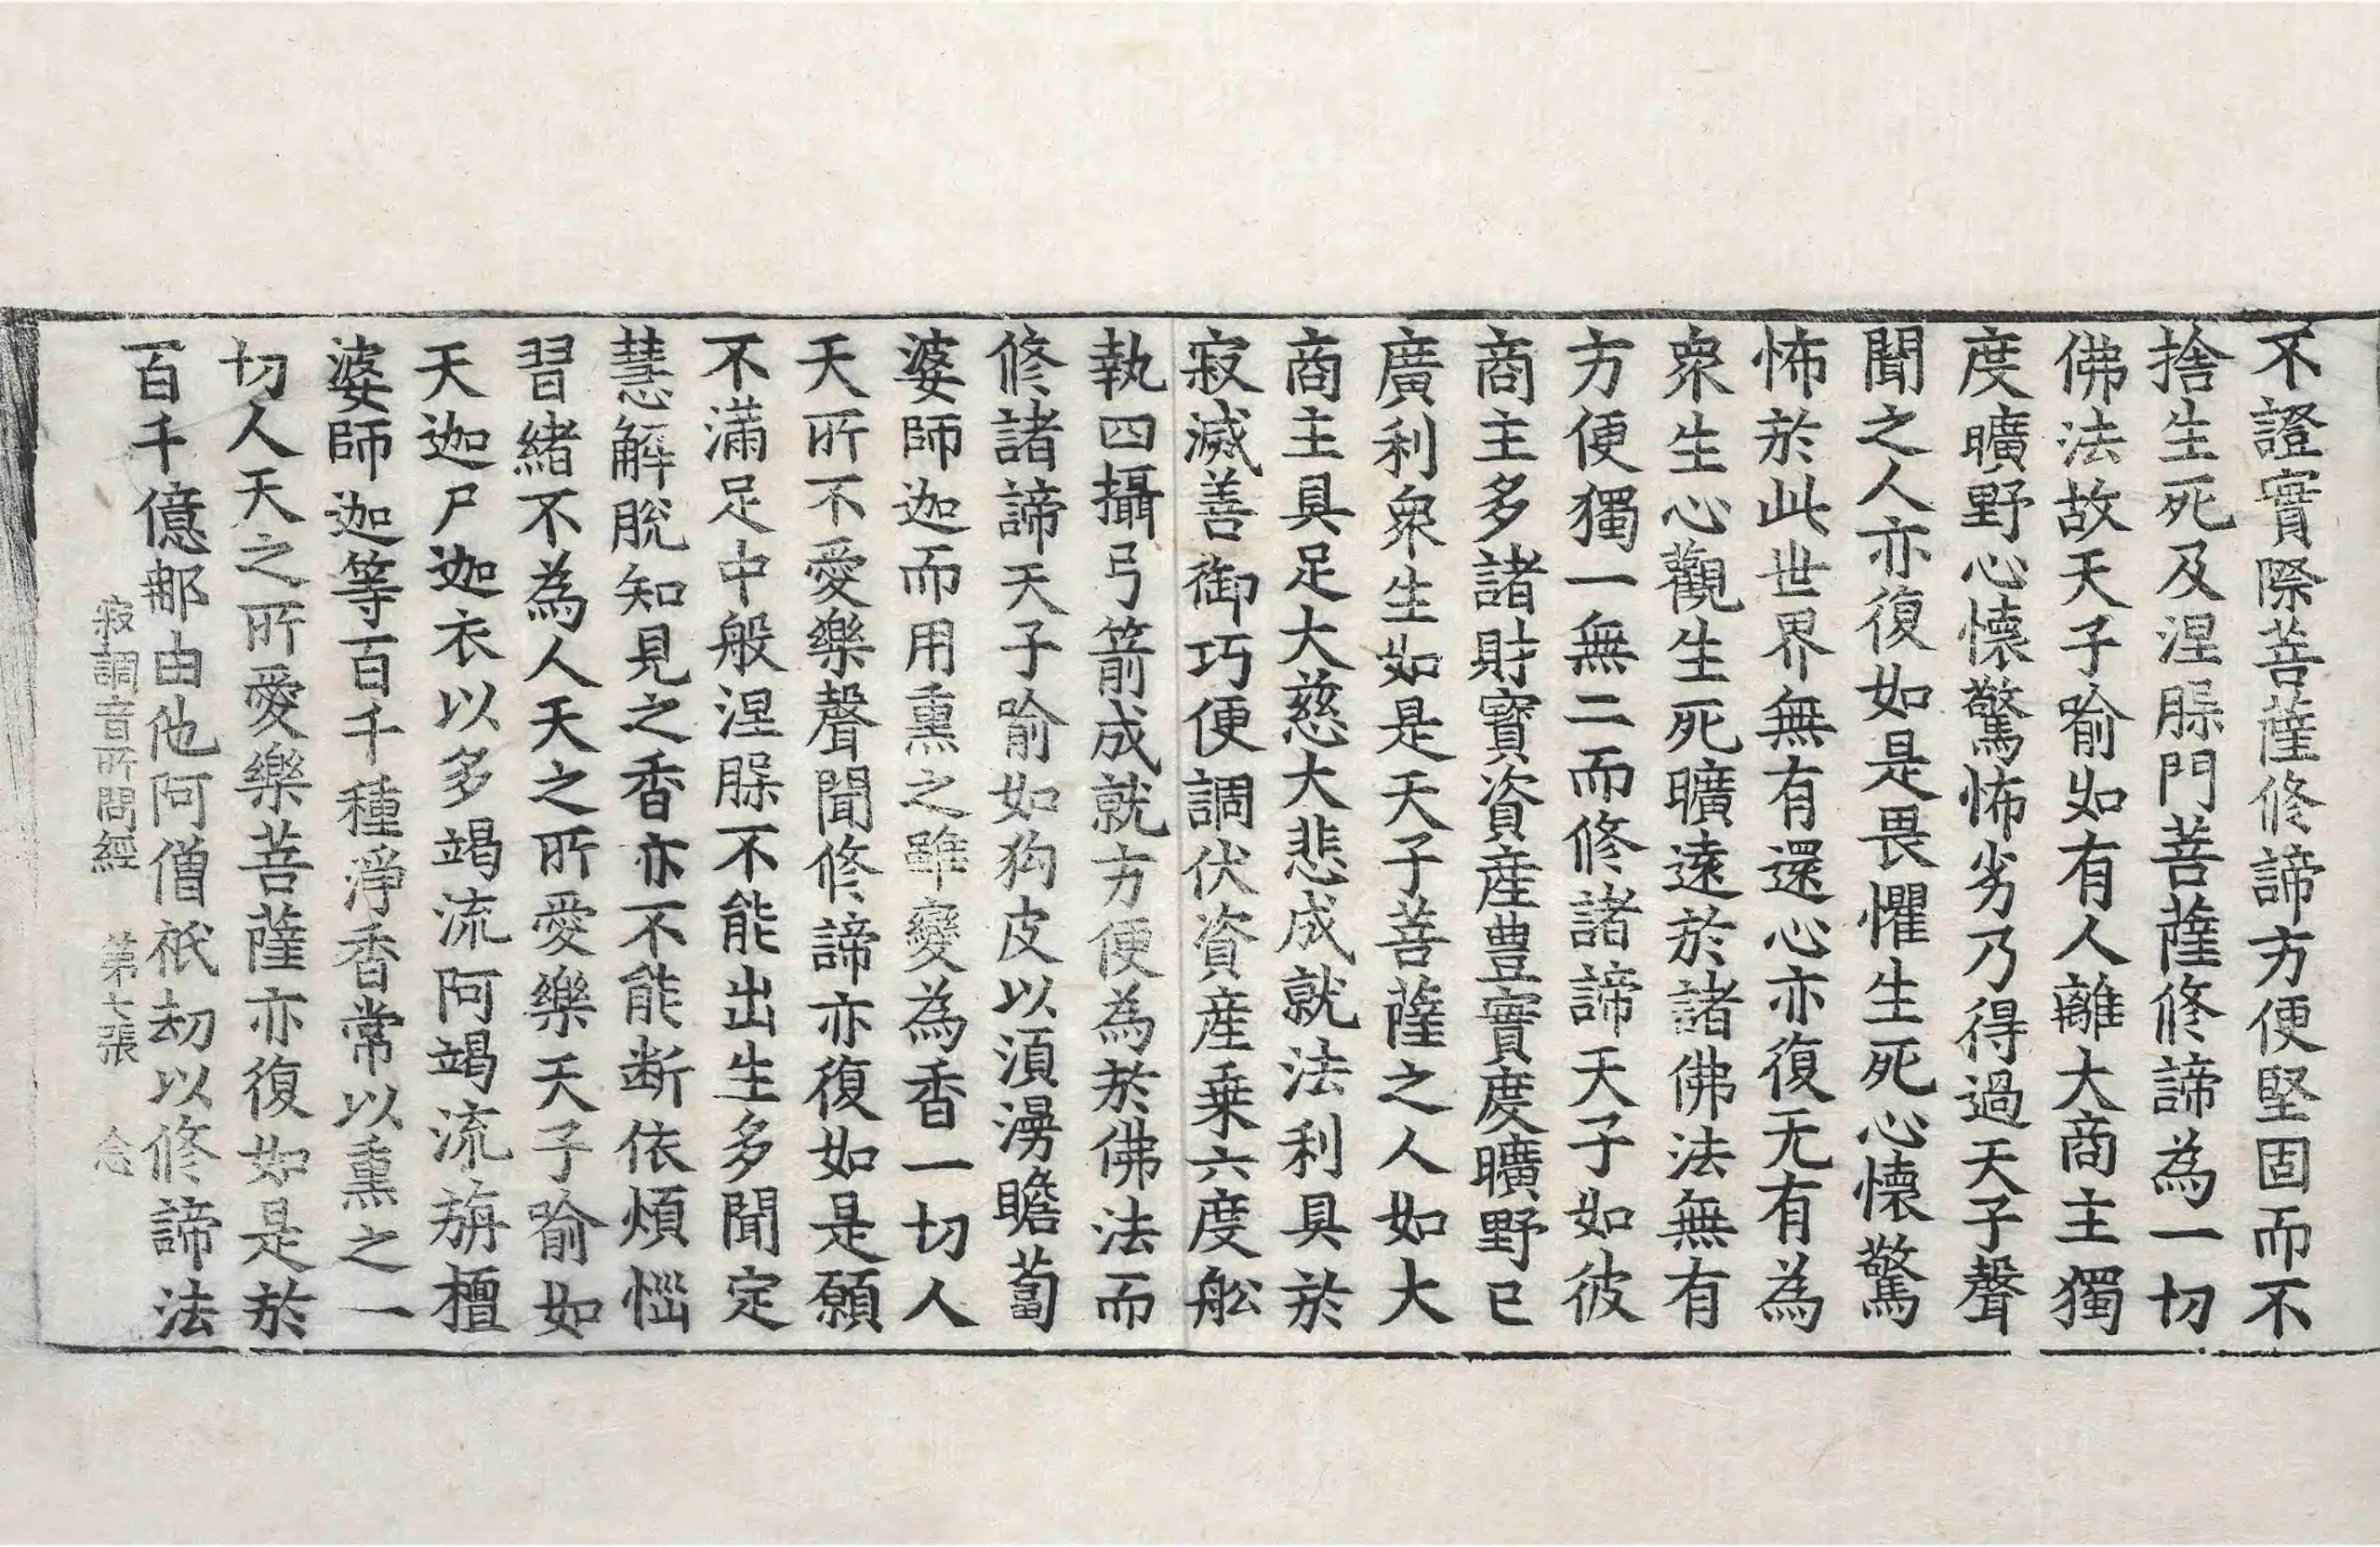 不證實際菩薩修諦方便堅固而不
捨生死及涅槃門菩薩修諦為一切
佛法故天子喻如有人離大商主獨
度曠野心懷驚怖劣乃得過天子聲
聞之人亦復如是畏懼生死心懷驚
怖於此世界無有還心亦復无有為
衆生心觀生死曠遠於諸佛法無有
方便獨一無二而修諸諦天子如彼
商主多諸財寳資産豊實度曠野已
廣利衆生如是天子菩薩之人如大
商主具足大慈大悲成就法利具於
寂滅善御巧便調伏資産乗六度舩
執四攝弓箭成就方便為於佛法而
修諸諦天子喻如狗皮以湏澷瞻蔔
婆師迦而用熏之雖變為香一切人
天所不愛樂聲聞修諦亦復如是願
不滿足中般涅槃不能出生多聞定
慧解脫知見之香亦不能断依煩惱
習緒不為人天之所愛樂天子喻如
天迦尸迦衣以多竭流阿竭流旃檀
婆師迦等百千種淨香常以熏之一
切人天之所愛樂菩薩亦復如是於
百千億那由他阿僧祇劫以修諦法
寂調音所問經　第七張　念